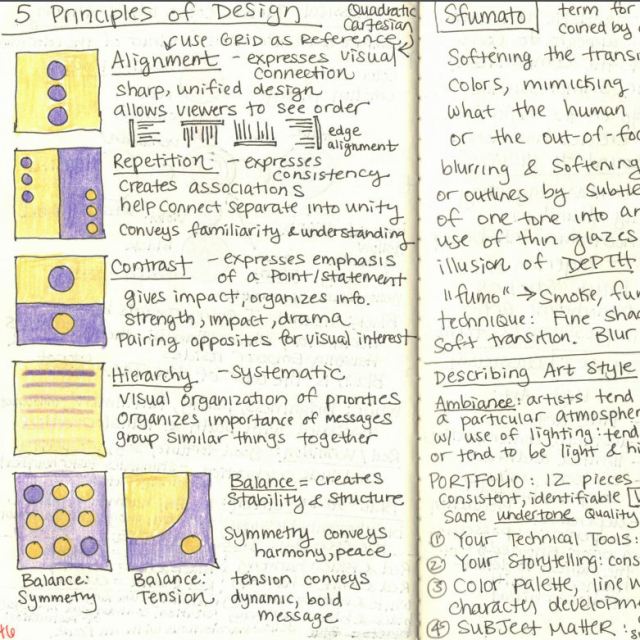 5 Principles of Design
Quadratic
Cartesian
USE GRID as Reference
Alignment - expresses visual
connection
sharp, unified design
allows viewers to see order
edge
alignment
Repetition: - expresses
consistency
creates associations
help connect separate into unity
conveys familiarity & understanding
Contrast - expresses emphasis
of a point/statement
gives impact, organizes info.
strength, impact, drama
Pairing opposites for visual interest
Hierarchy - Systematic
visual organization of priorities
Organizes importance of messages
group similar things together
Balance = creates
Stability & Structure
Symmetry conveys
harmony, peace
tension conveys
dynamic, bold
message
Balance:
Symmetry
Balance:
Tension
46
Sfumato
term for
coined by
Softening the transi
colors, mimicking
what the human
or the out-of-foc
blurring & Softening
or outlines by subtle
of one tone into an
use of thin glazes
illusion of DEPTH
"fumo" → Smoke, fum
technique: Fine shad
Soft transition. Blur
Describing Art Style
Ambiance: artists tend
a particular atmosphe
w/ use of lighting: tend
or tend to be light & hi
PORTFOLIO: 12 pieces
Consistent, identifiable
Same undertone Quality
① Your Technical Tools:
② Your Storytelling: cons
③ Color palette, line w
character developm
④ SUBJect MaHer: